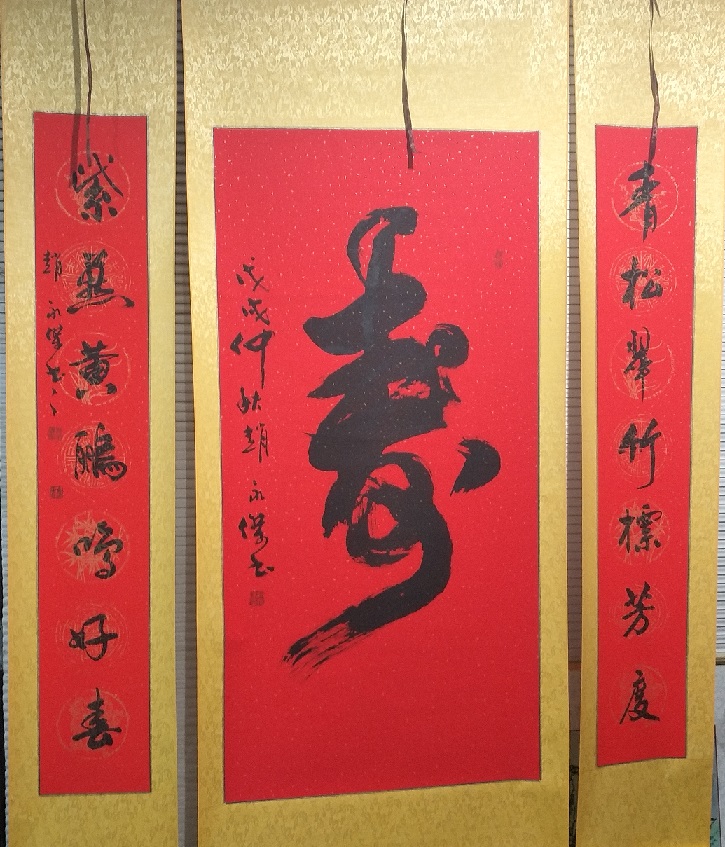 青松翠竹標芳度
壽
戊戌仲秋趙永傑書
紫燕黄鸝鳴好春
趙永傑書